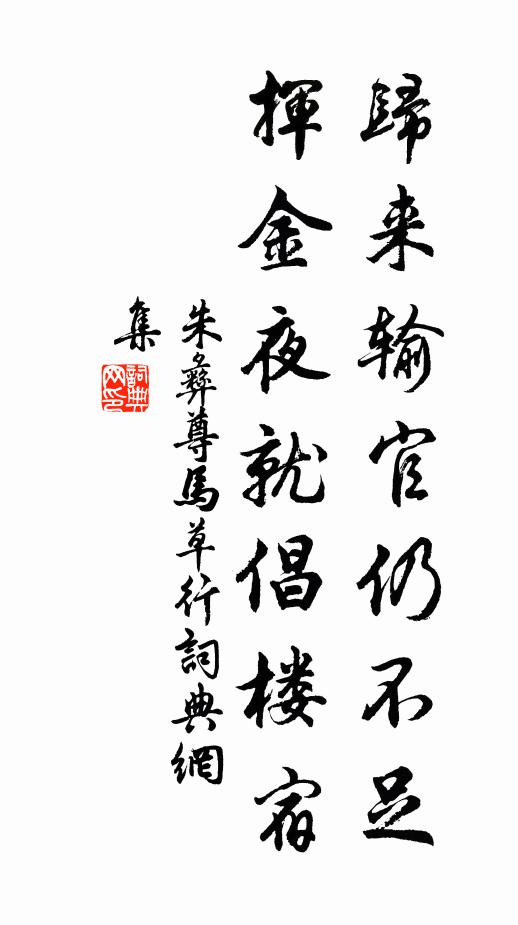 歸来输官仍不足
揮金夜就倡楼宿
朱彝尊馬草行詞典網
集
詞典网印